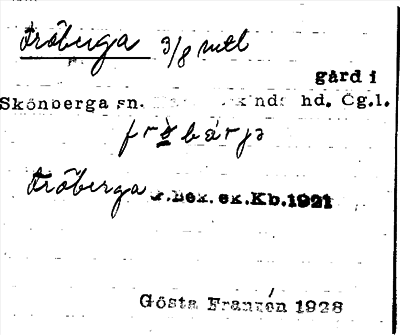 Fröberga 3/8 mtl
gård i
Skönberga sn. kinds hd. Ög.l.
Fröberga F.Bex. ex.Kb.1921
Gösta Franzén 1928